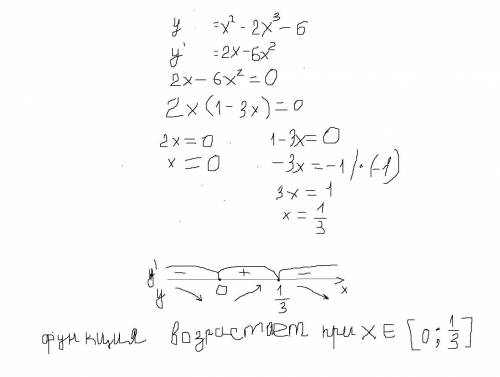 y = x² - 2x³ - 6
y' = 2x - 6x²
2x - 6x² = 0
2x(1 - 3x) = 0
2x = 0 1 - 3x = 0
x = 0 -3x = -1 /·(-1)
3x = 1
x = 1/3
y' - + -
y 0 1/3 x
функция возрастает при x ∈ [0; 1/3]